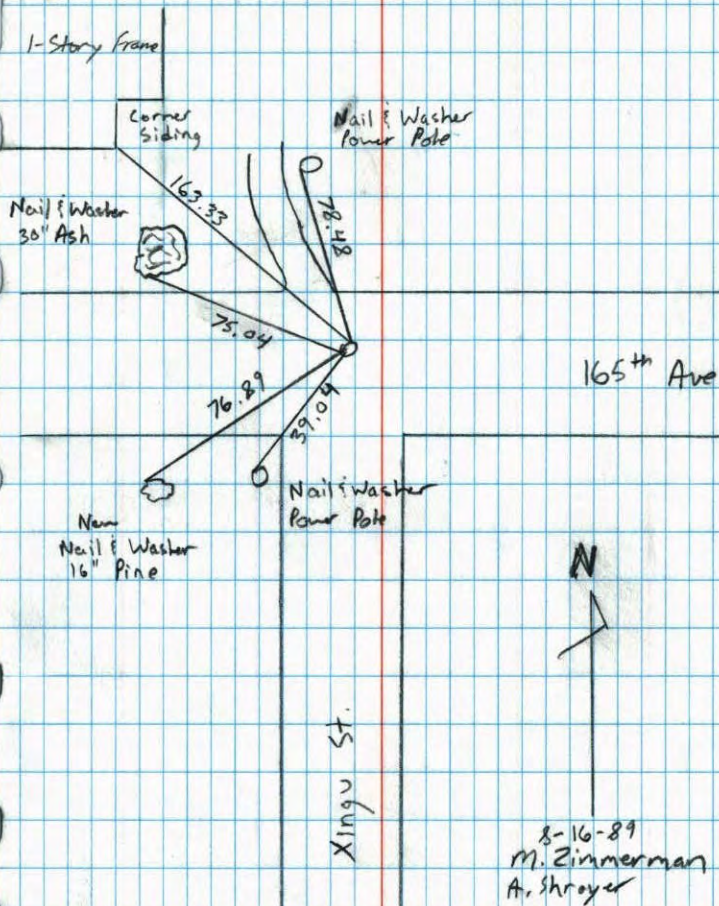 1-Story Frame
Corner
Siding
Nail & Washer
Power Pole
163.33
78.48
Nail & Washer
30" Ash
75.04
165th Ave
76.89
39.04
Nail & Washer
Power Pole
New
Nail & Washer
16" Pine
N
Xingu St.
8-16-89
M. Zimmerman
A. Shroyer